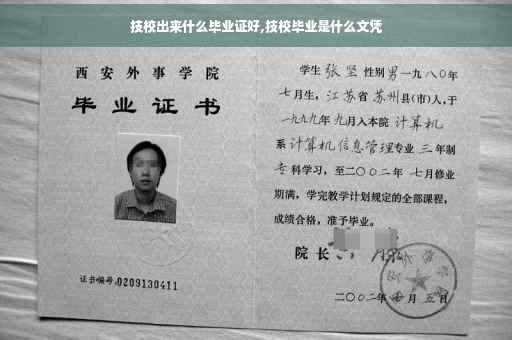 技校出来什么毕业证好,技校毕业是什么文凭
西安外事学院
毕业证书
证书编号:0209130411
学生 张坚 性别 男 一九八〇年
七月生,江苏省苏州县(市)人,于
一九九九年九月入本院 计算机
系 计算机信息管理 专业 三 年制
专科学习,至二〇〇二年 七月修业
期满,学完教学计划规定的全部课程,
成绩合格,准予毕业。
院长
二〇〇二年 月五日